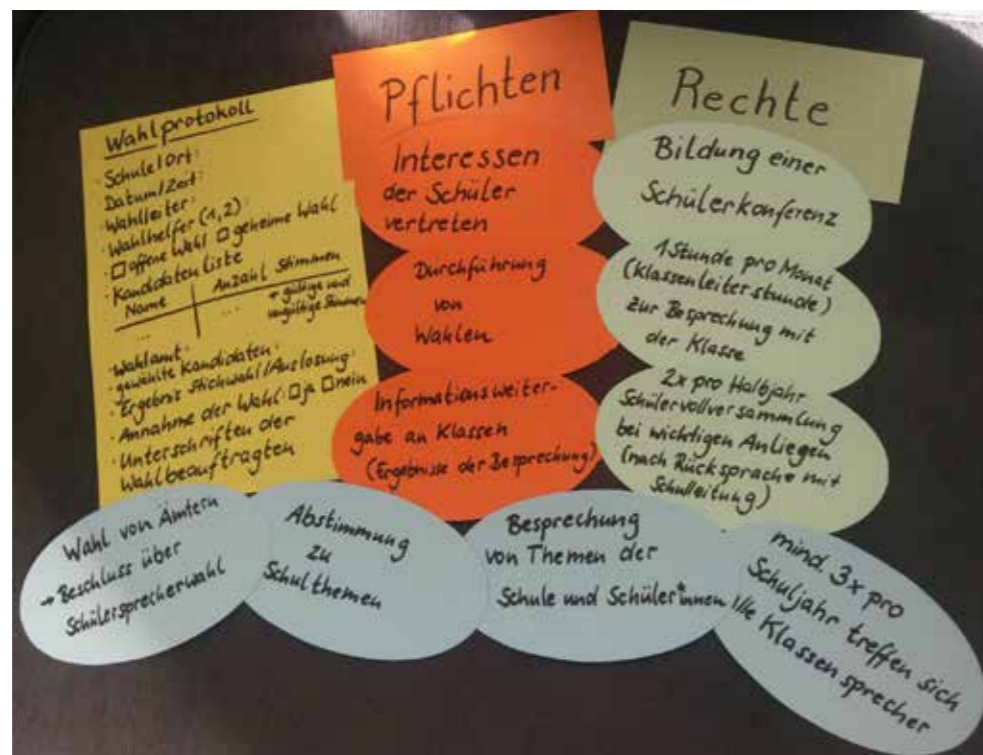 Wahlprotokoll
· Schule/Ort:
Datum/Zeit:
· Wahlleiter:
· Wahlhelfer (1,2):
· □ offene Wahl □ geheime Wahl
· Kandidatenliste
Name Anzahl Stimmen
... ... → gültige und
ungültige Stimmen
· Wahlamt:
· gewählte Kandidaten:
· Ergebnis Stichwahl/Auslosung:
· Annahme der Wahl: □ ja □ nein
· Unterschriften der
Wahlbeauftragten
Pflichten
Interessen
der Schüler
vertreten
Durchführung
von
Wahlen
Informationsweiter-
gabe an Klassen
(Ergebnisse der Besprechung)
Rechte
Bildung einer
Schülerkonferenz
1 Stunde pro Monat
(Klassenleiterstunde)
zur Besprechung mit
der Klasse
2x pro Halbjahr
Schülervollversammlung
bei wichtigen Anliegen
(nach Rücksprache mit
Schulleitung)
Wahl von Ämtern
→ Beschluss über
Schülersprecherwahl
Abstimmung
zu
Schulthemen
Besprechung
von Themen der
Schule und Schüler*innen
mind. 3x pro
Schuljahr treffen sich
alle Klassensprecher